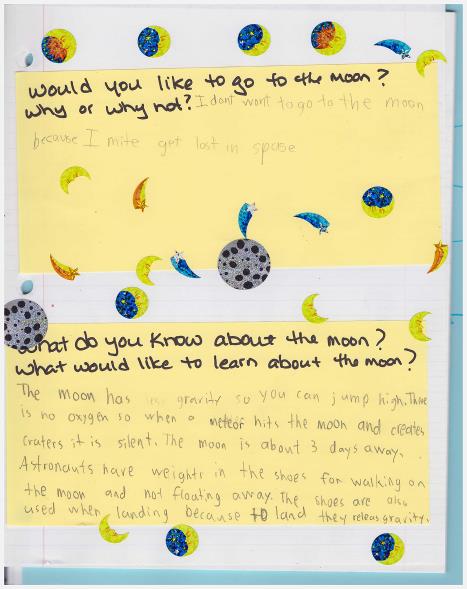 would you like to go to the moon?
why or why not? I dont want to go to the moon
because I mite get lost in spase
What do you know about the moon?
What would like to learn about the moon?
The moon has less gravity so you can jump high. There
is no oxygen so when a meteor hits the moon and creates
craters it is silent. The moon is about 3 days away.
Astronauts have weights in the shoes for walking on
the moon and not floating away. The shoes are also
used when landing because to land they releas gravity.